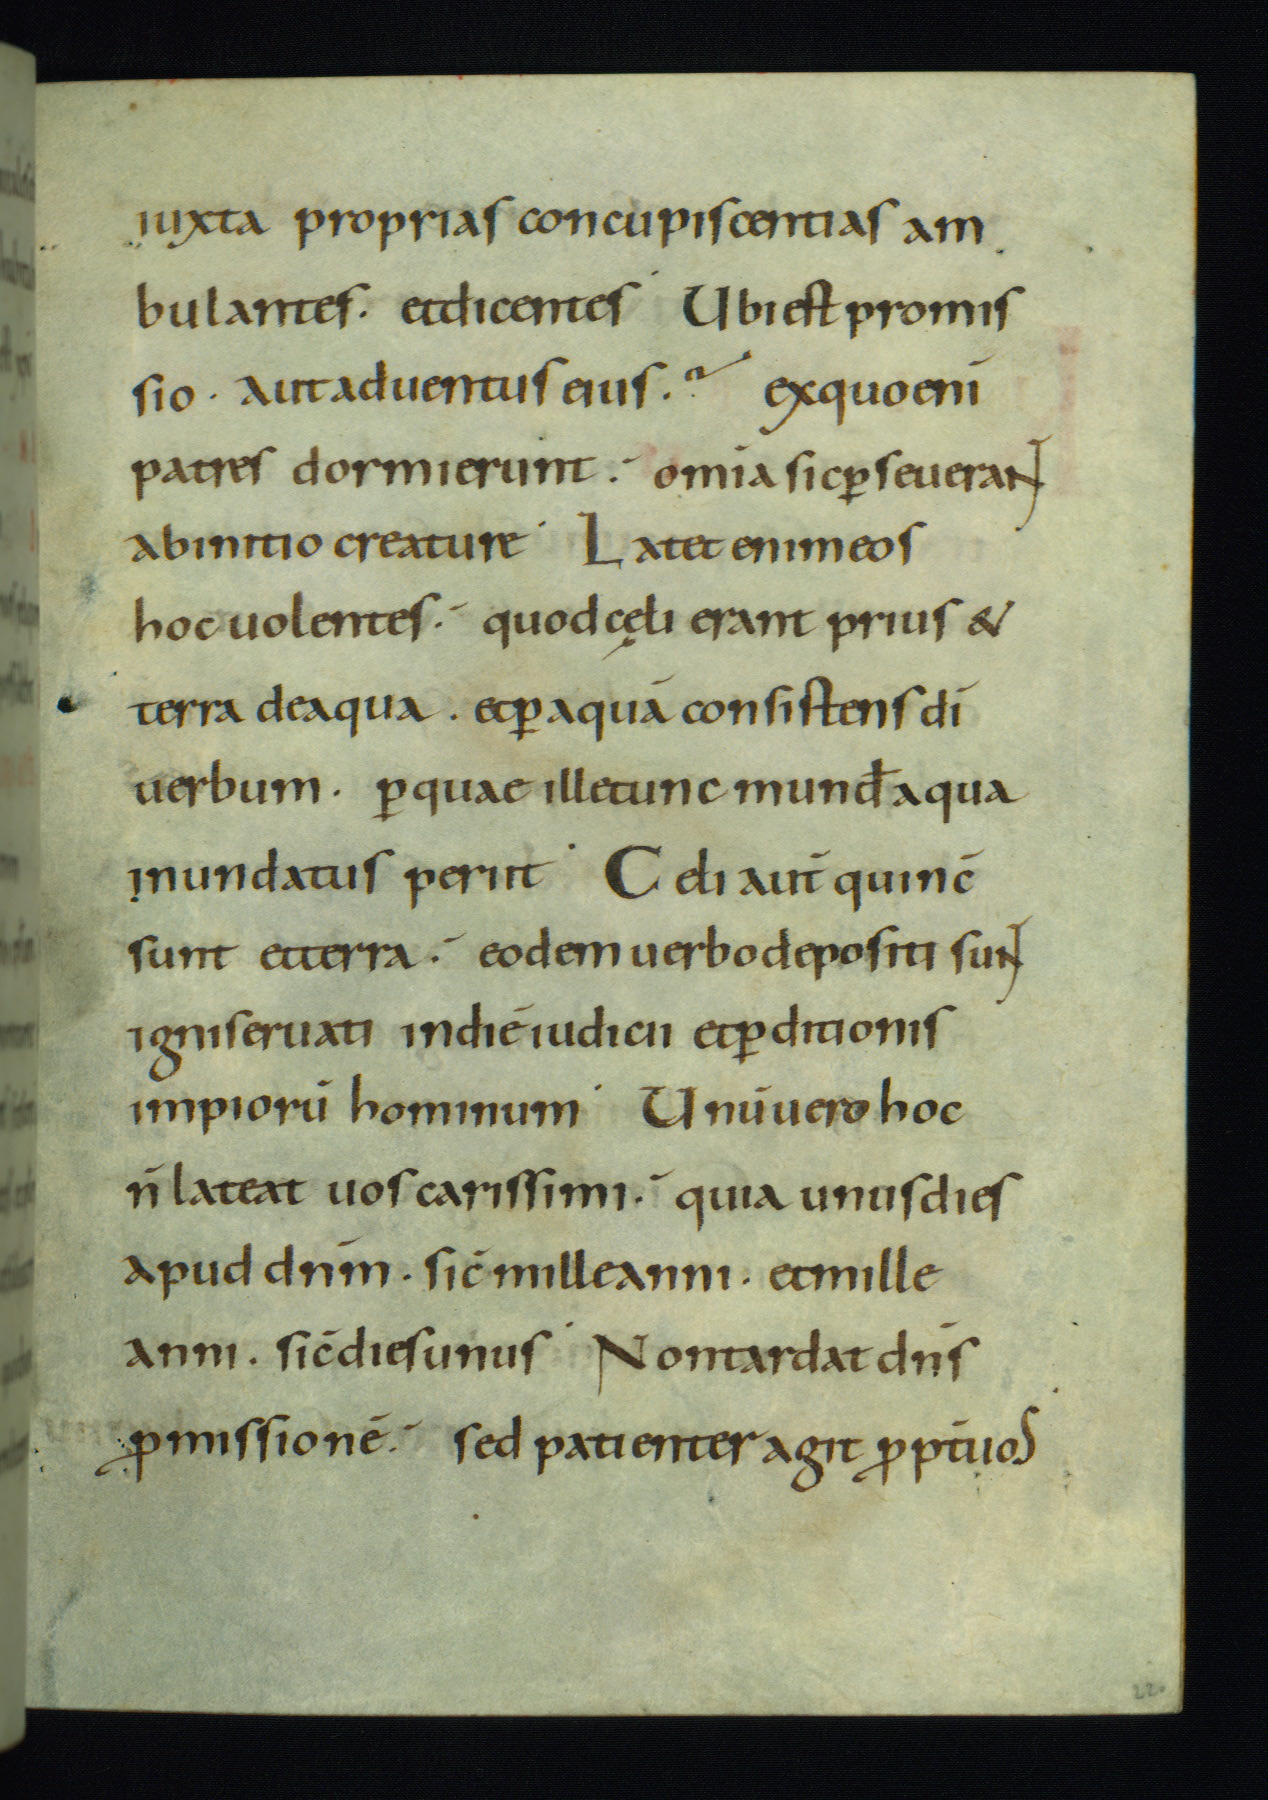 iuxta proprias concupiscentias am
bulantes. et dicentes Ubi est promis
sio. aut aduentus eius. ex quo eni̅
patres dormierunt. om̅ia sic ꝑseuerant
ab initio creature Latet enim eos
hoc uolentes. quod cęli erant prius &
terra de aqua. et ꝑ aqua̅ consistens di̅
uerbum. ꝑ quae ille tunc mund̅ aqua
inundatus periit Celi aut̅ qui nc̅
sunt et terra. eodem uerbo depositi sunt
igni seruati in die̅ iudicii et ꝑditionis
impioru̅ hominum Unu̅ uero hoc
n̅ lateat uos carissimi. quia unus dies
apud dn̅m. sic̅ mille anni. et mille
anni. sic̅ dies unus Non tardat dn̅s
ꝓmissione̅. sed patienter agit ꝓpt̅ uos
220